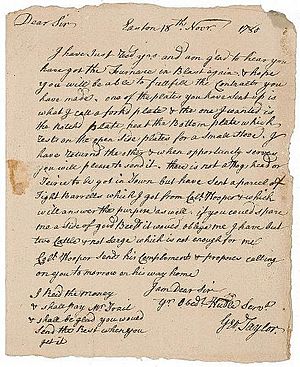 Dear Sir
Easton 18th Novr. 1780
I have Just Recd yrs and am glad to hear you
have got the Furnace in Blast again & hope
you will be able to fullfill the Contracts you
have made, one of the plates you have sent up is
what I call a forks plate & the one I wanted is
the Plate, the Bottom plate which
rests on the open Side plates for a Small Stove. I
have returnd the & when opportunity serves
you will please to send it. there is not a Hogshead or
Teirce to be got in Town but have sent a parcel of
Tight Barrells which I got from Colo. Hooper & which
will answer the purpose as well. if you could spare
me a Side of good Beef it would oblige me I have but
two Cattle & not Large which is not enough for me
Colo. Hooper sends his Complements & proposes calling
on you to morrow on his way home
I Recd the money
& shall pay Mr. Trail
& shall be glad you would
send the Best when you
get it
I am Dear Sir
Yr Obedt Huble Servt
Geo Taylor